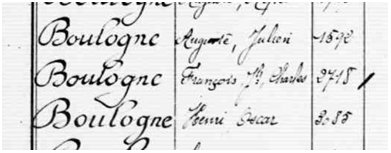 Boulogne Auguste, Julien 1592
Boulogne François Jh, Charles 2718
Boulogne Henri, Oscar 3085